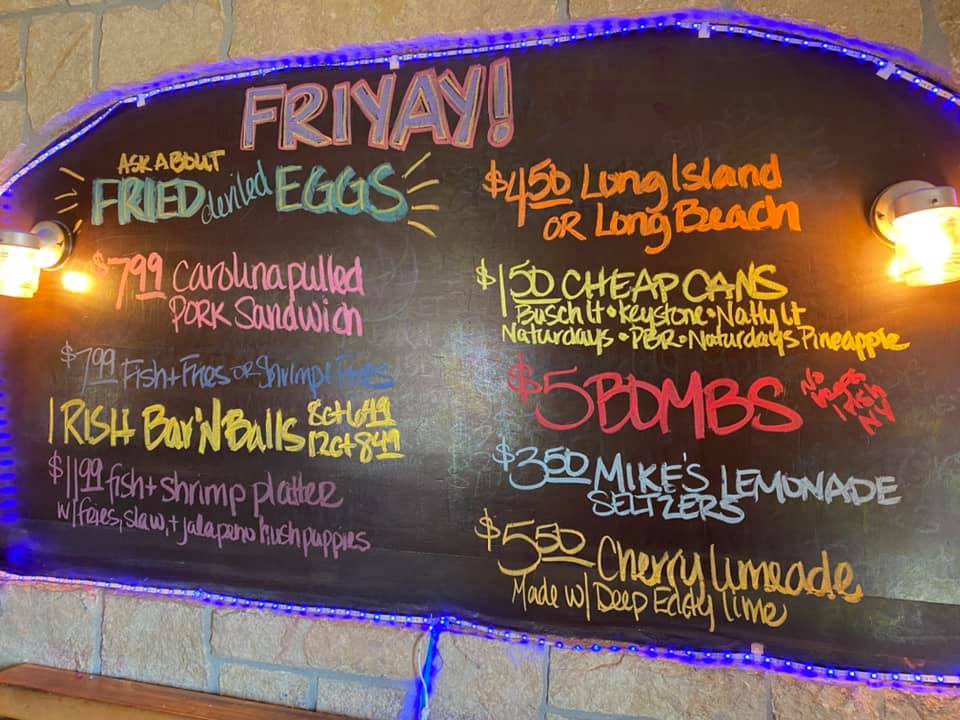 FRIYAY!
ASK ABOUT
FRIED deviled EGGS
$7.99 Carolina pulled
PORK Sandwich
$7.99 Fish + Fries OR Shrimp + Fries
IRISH Bar'N'Balls 8ct 6.49
12ct 8.49
$11.99 fish + shrimp platter
w/ fries, slaw, + jalapeno hushpuppies
$4.50 Long Island
OR Long Beach
$1.50 CHEAP CANS
Busch Lt • Keystone • Natty Lt
Naturdays • PBR • Naturdays Pineapple
$5 BOMBS
NO
$3.50 MIKE'S LEMONADE
SELTZERS
$5.50 Cherry limeade
Made w/ Deep Eddy lime